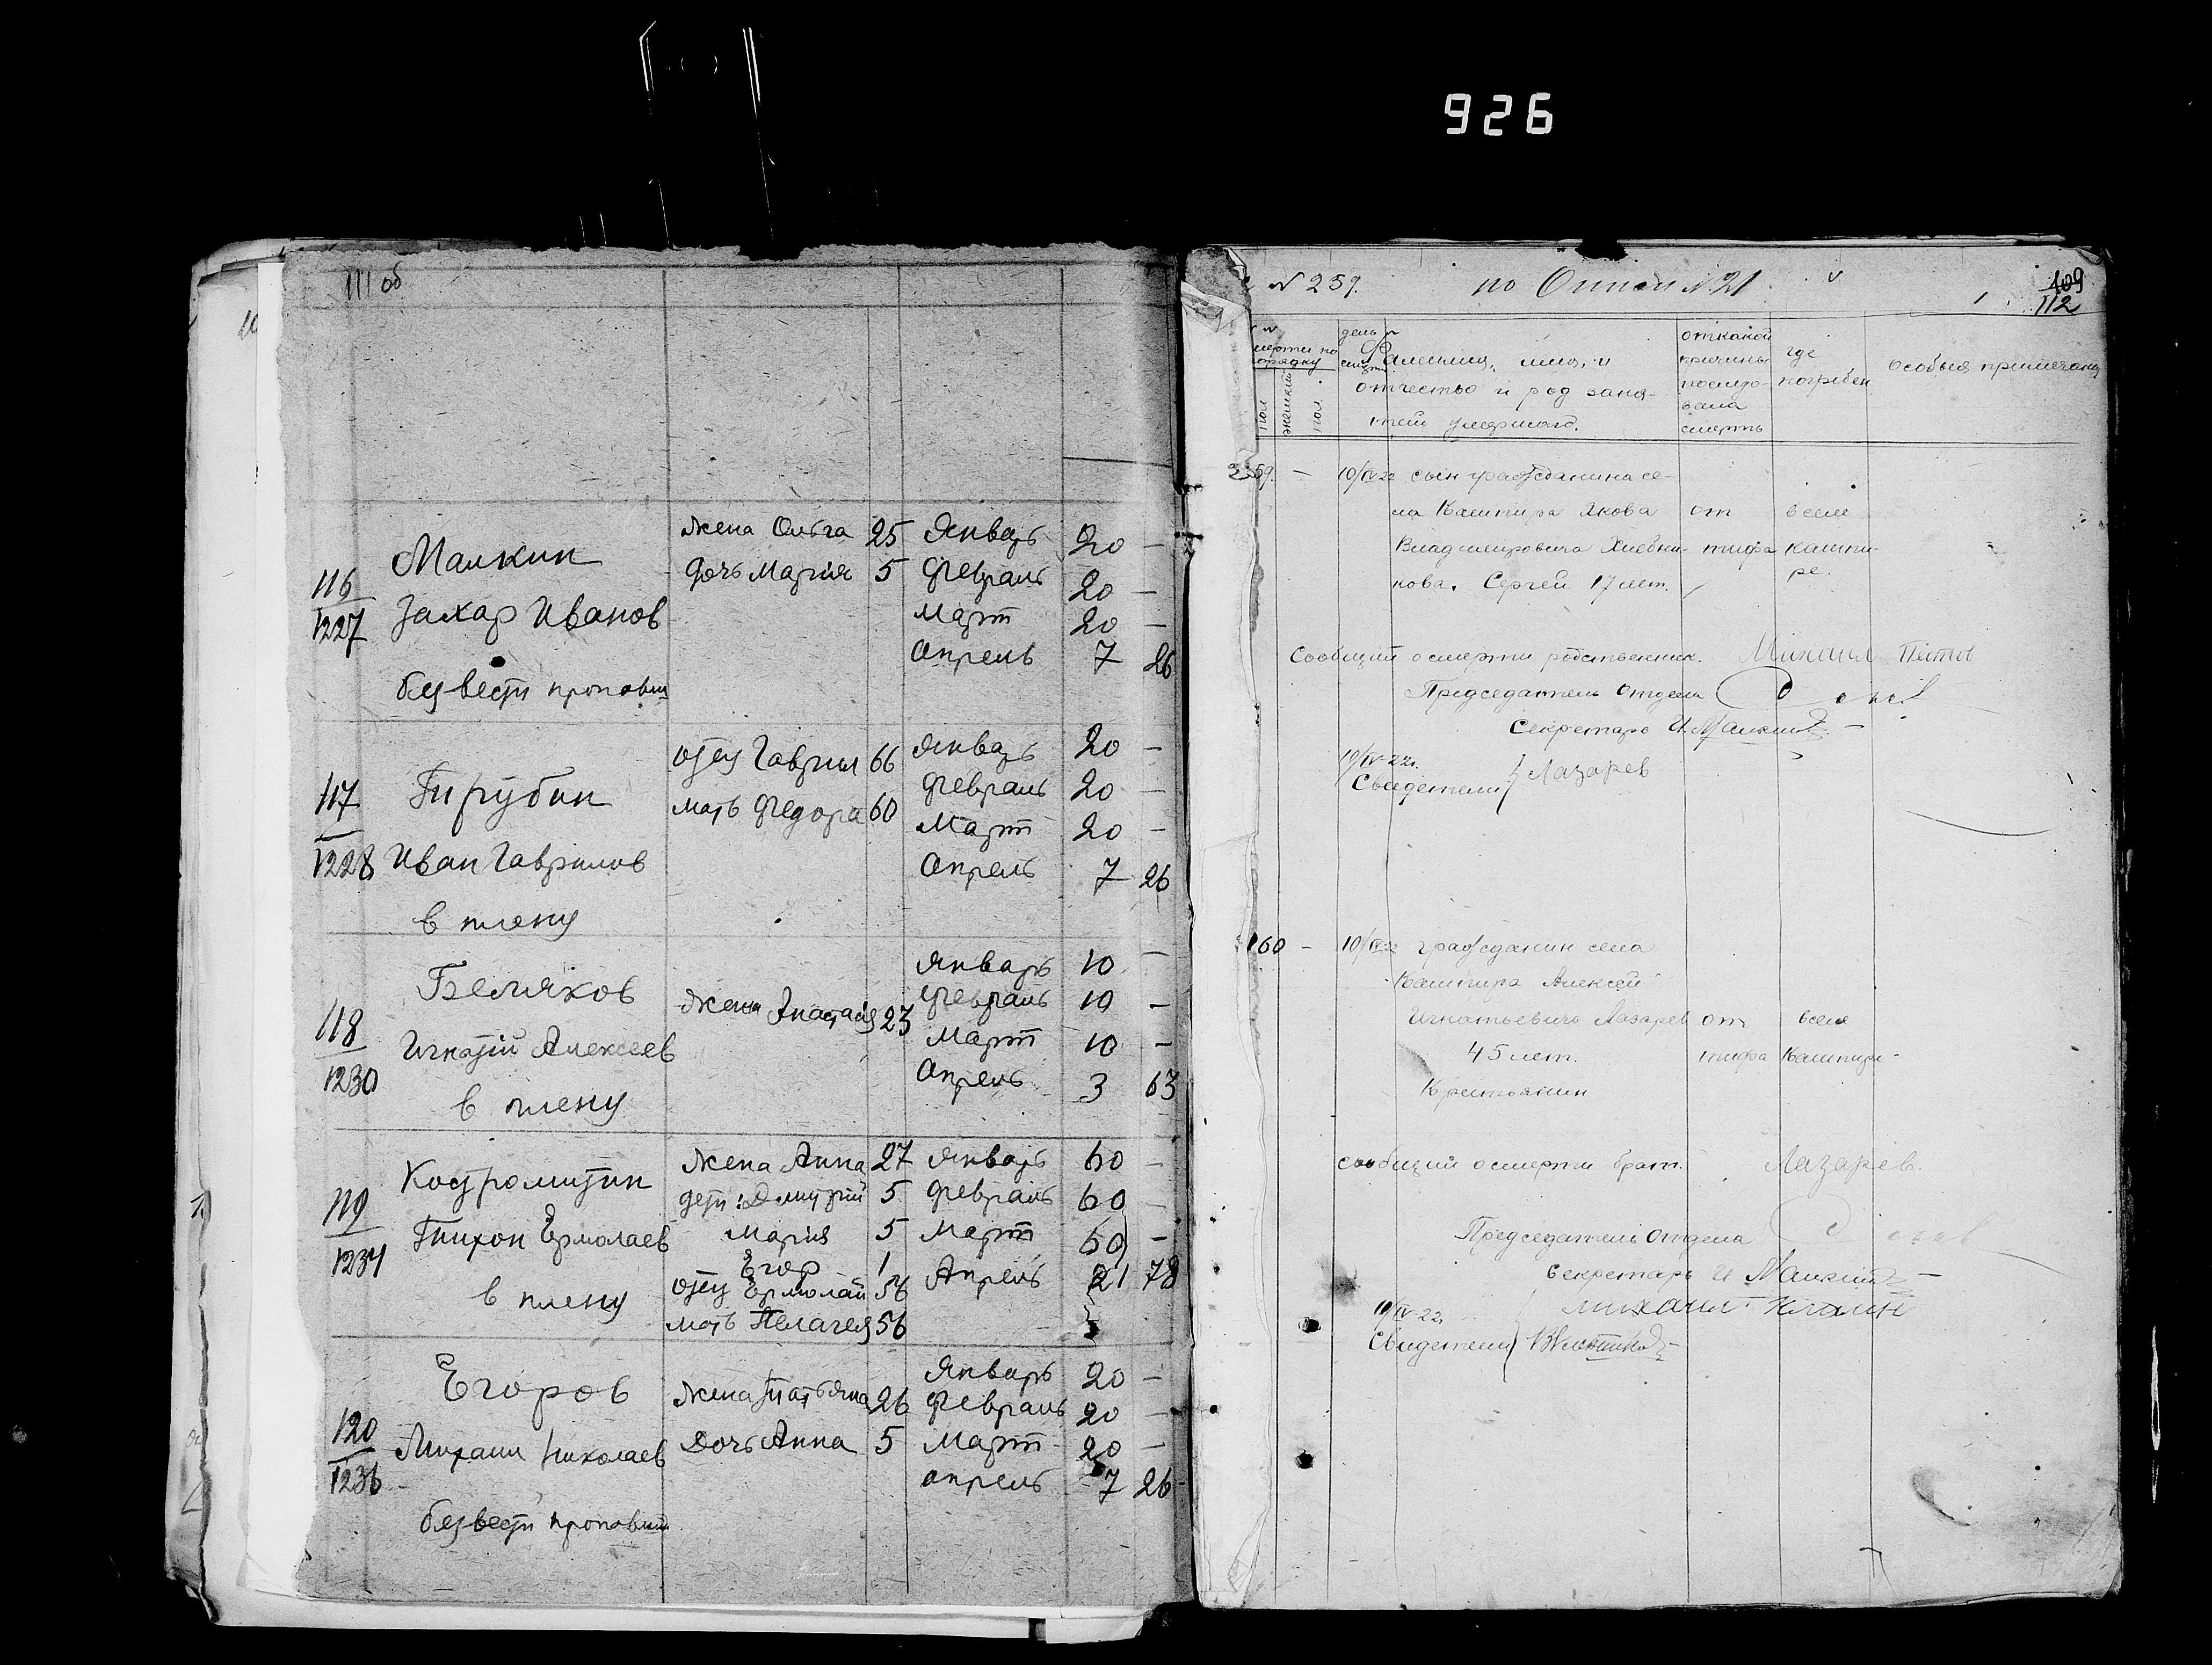 926
111 об
116
1227
Малкин
Захар Иванов
без вести пропавш
жена Ольга 25
дочь Мария 5
Январь 20 —
Февраль 20 —
Март 20 —
Апрель 7 26
117
1228
Пирубин
Иван Гаврилов
в плену
отец Гаврил 66
мать Федора 60
Январь 20 —
Февраль 20 —
Март 20 —
Апрель 7 26
118
1230
Беляков
Игнатий Алексеев
в плену
жена Анастасия 23
Январь 10 —
Февраль 10 —
Март 10 —
Апрель 3 63
119
1234
Костромитин
Тихон Ермолаев
в плену
жена Анна 27
дети: Дмитрий 5
Мария 5
Егор 1
отец Ермолай 56
мать Пелагея 56
Январь 60 —
Февраль 60 —
Март 60 —
Апрель 21 78
120
1236
Егоров
Михаил Николаев
без вести пропавший
жена Татьяна 26
Дочь Анна 5
Январь 20 —
Февраль 20 —
Март 20 —
апрель 7 26
N 259. по Описи N 21
109
112
смерти по порядку
пол
женский пол
день смерти
Фамилия, имя, и
отчество и род заня-
тий умершого.
от какой
причины
последо-
вала
смерть
где
погребен
особыя примечания
259. — 10/IV-22 сын гражданина се-
ла Кашпира Якова от в селе
Владимировича Хлебни- тифа кашпи-
кова. Сергей 17 лет. ре.
Сообщий о смерти родственник. Михаил
Председатель Отдела
Секретарь И. Малкин
10/IV-22г.
Свидетели Лазарев
260 — 10/IV-22 гражданин села
Кашпира Алексей
Игнатьевичь Лазарев от в селе
45 лет. тифа Кашпире
Крестьянин
сообщий о смерти брат. Лазарев.
Председатель Отдела
Секретарь И Малкин
10/IV-22 михаил
Свидетели